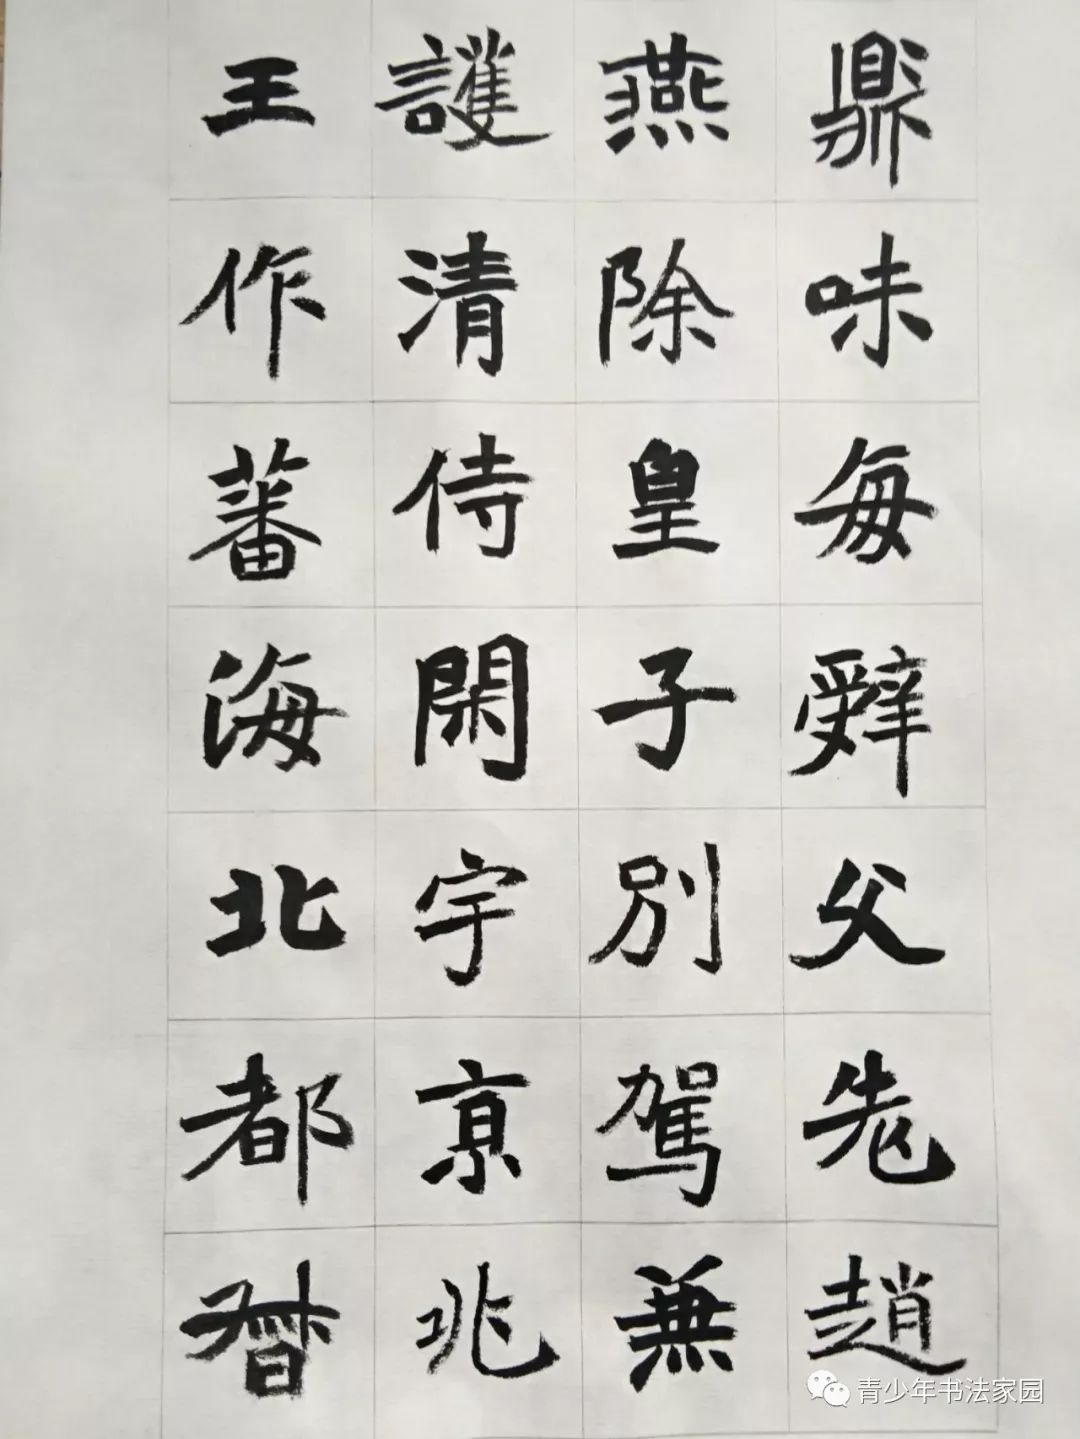 鼎味每辤父先趙
燕除皇子別駕兼
護清侍閑宇京兆
王作蕃海北都督
青少年书法家园